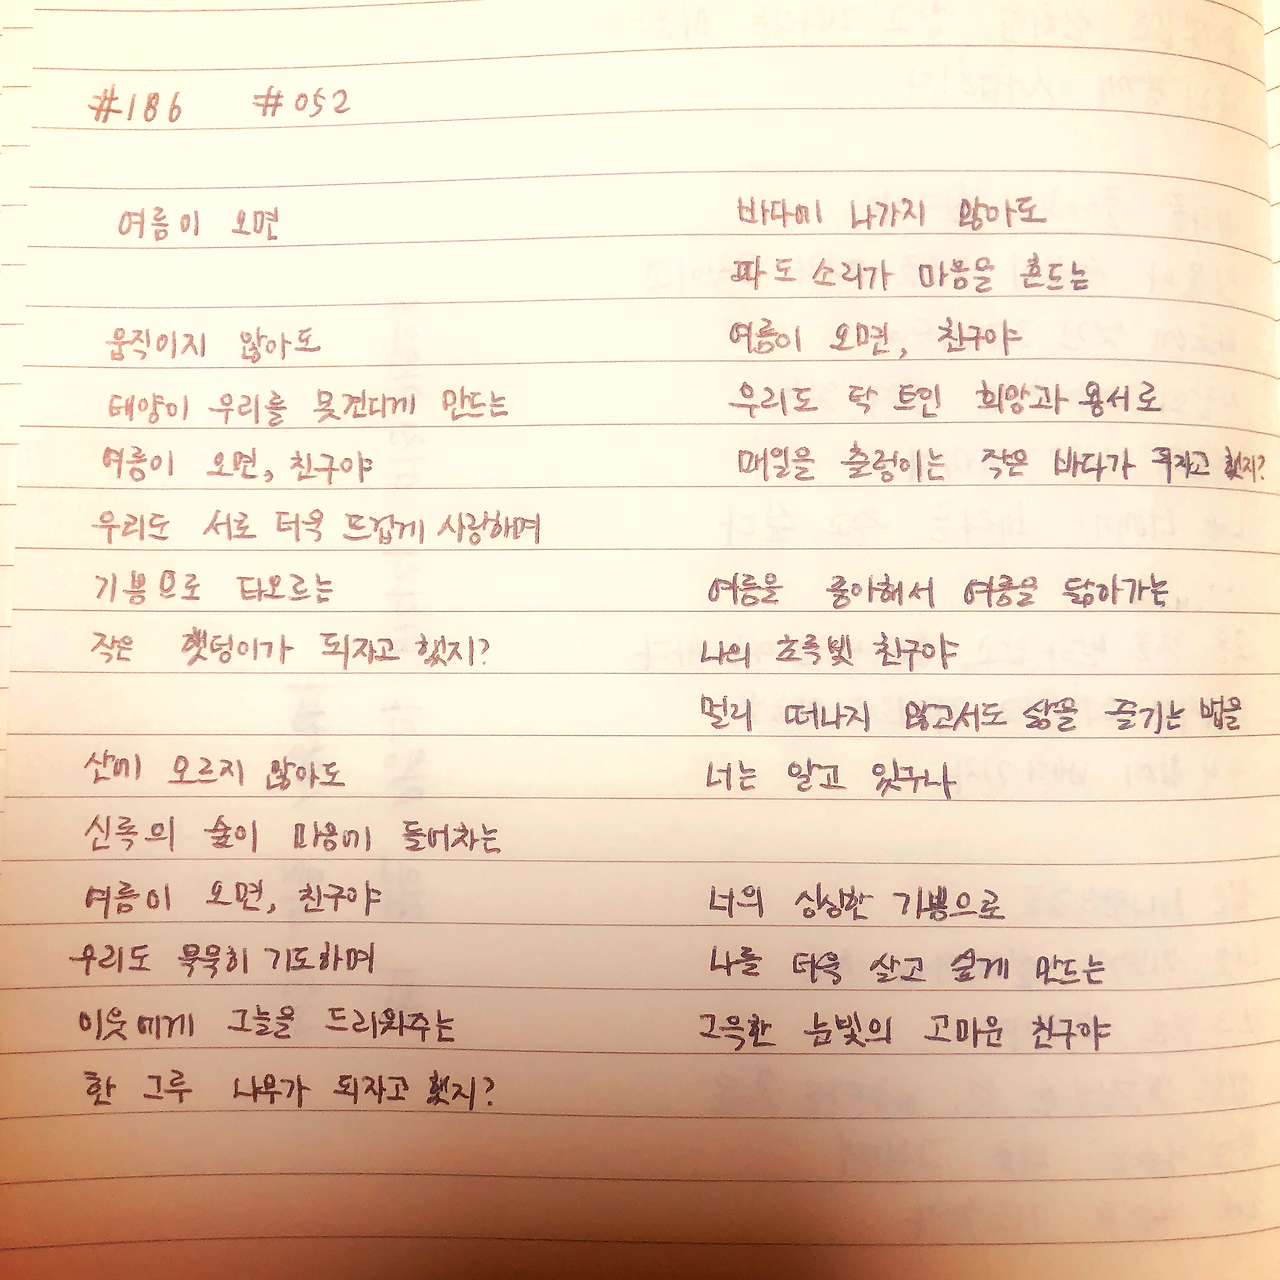 #186 #052
여름이 오면
움직이지 않아도
태양이 우리를 못견디게 만드는
여름이 오면, 친구야
우리도 서로 더욱 뜨겁게 사랑하며
기쁨으로 타오르는
작은 햇덩이가 되자고 했지?
산에 오르지 않아도
신록의 숲이 마음에 들어차는
여름이 오면, 친구야
우리도 묵묵히 기도하며
이웃에게 그늘을 드리워주는
한 그루 나무가 되자고 했지?
바다에 나가지 않아도
파도소리가 마음을 흔드는
여름이 오면, 친구야
우리도 탁 트인 희망과 용서로
매일을 출렁이는 작은 바다가 되자고 했지?
여름을 좋아해서 여름을 닮아가는
나의 초록빛 친구야
멀리 떠나지 않고서도 삶을 즐기는 법을
너는 알고 있구나
너의 싱싱한 기쁨으로
나를 더욱 살고 싶게 만드는
그윽한 눈빛의 고마운 친구야